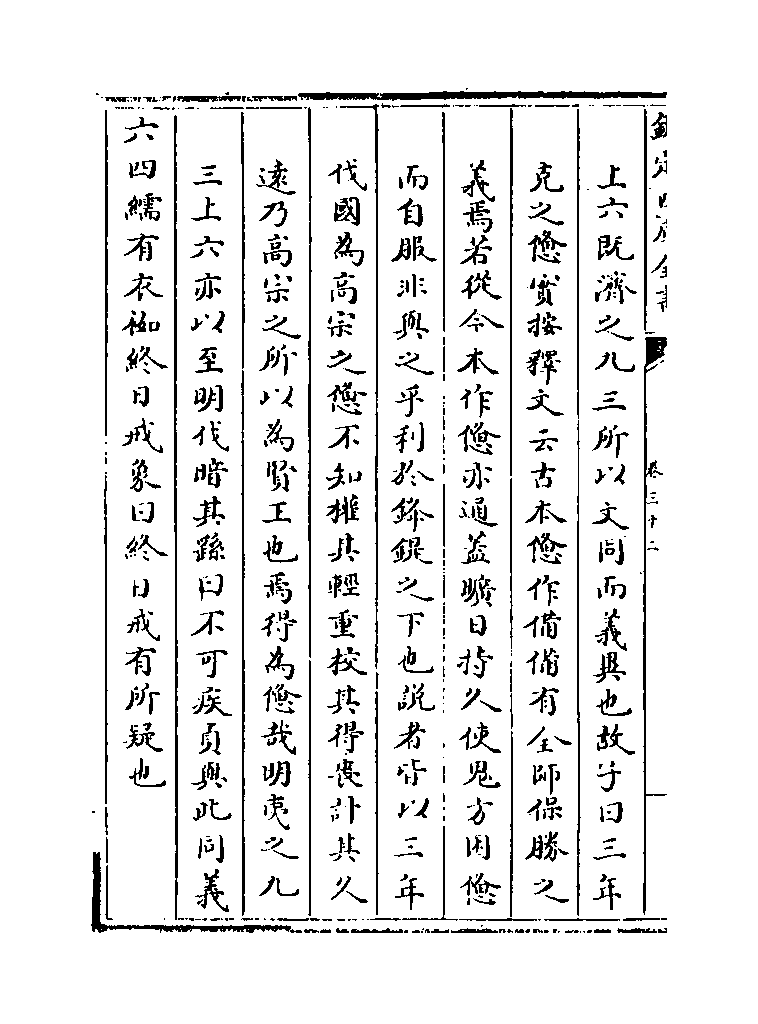 欽定四庫全書
卷三十二
上六既濟之九三所以文同而義異也故子曰三年
克之憊實按釋文云古本憊作備備有全師保勝之
義焉若從今本作憊亦通蓋曠日持久使鬼方困憊
而自服非興之乎利於鋒鍉之下也説者皆以三年
伐國為高宗之憊不知權其輕重校其得喪計其久
逺乃高宗之所以為賢王也焉得為憊哉明夷之九
三上六亦以至明伐暗其繇曰不可疾貞與此同義
六四繻有衣袽終日戒象曰終日戒有所疑也